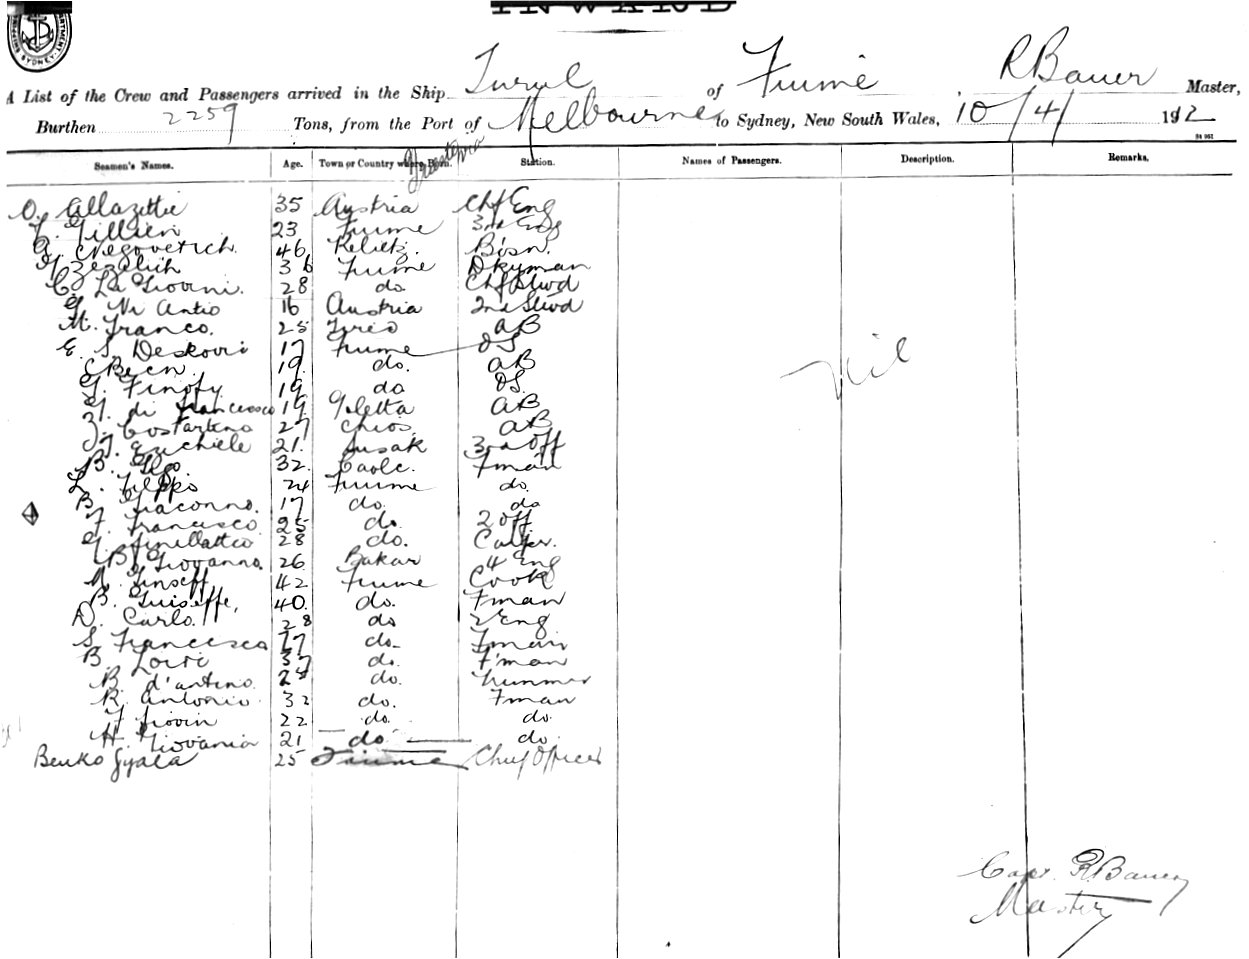 INWARD
SHIPPING DEPARTMENT. SYDNEY
A List of the Crew and Passengers arrived in the Ship Turul of Fiume R Bauer Master,
Burthen 2259 Tons, from the Port of Melbourne to Sydney, New South Wales, 10/4/ 1912
Seamen's Names. Age. Town or Country where Born. Station. Names of Passengers. Description. Remarks.
O. Allazettie 35 Austria Chf Eng
23 Fiume 3rd Eng
A. Negovetich 46 Bosn.
Zezelich 36 Fiume Dkyman
C. La Giovini. 28 do. Chf Stwd
G. Ni Antio 16 Austria 2nd Stwd
M. Franco. 25 AB
E. S. Deskovi 17 Fiume OS
19 do. AB
G. Finofy 19 do OS
G. di Francesco 19 AB
Costartino 27 Chios AB
Ezichiele 21. Susak 3rd Off
B. 32. Fman
L. Filippo 24 Fiume do.
B. Giaconno. 17 do. do
F. Francisco 25 do. 2 Off
G. 28 do.
B. Giovanno. 26 Bakar 4 Eng
M. 42 Fiume Cook
B. Guiseffe, 40. do. Fman
D. Carlo. 28 do 2 Eng
S. Francesco 17 do. Fman
B. 37 do. F'man
B. d'antino. do. Trimmer
R. Antonio 32 do. Fman
22 do. do.
H. Giovania 21 do do.
Benko Gyala 25 Fiume Chief Officer
Nil
Capt. R. Bauer
Master